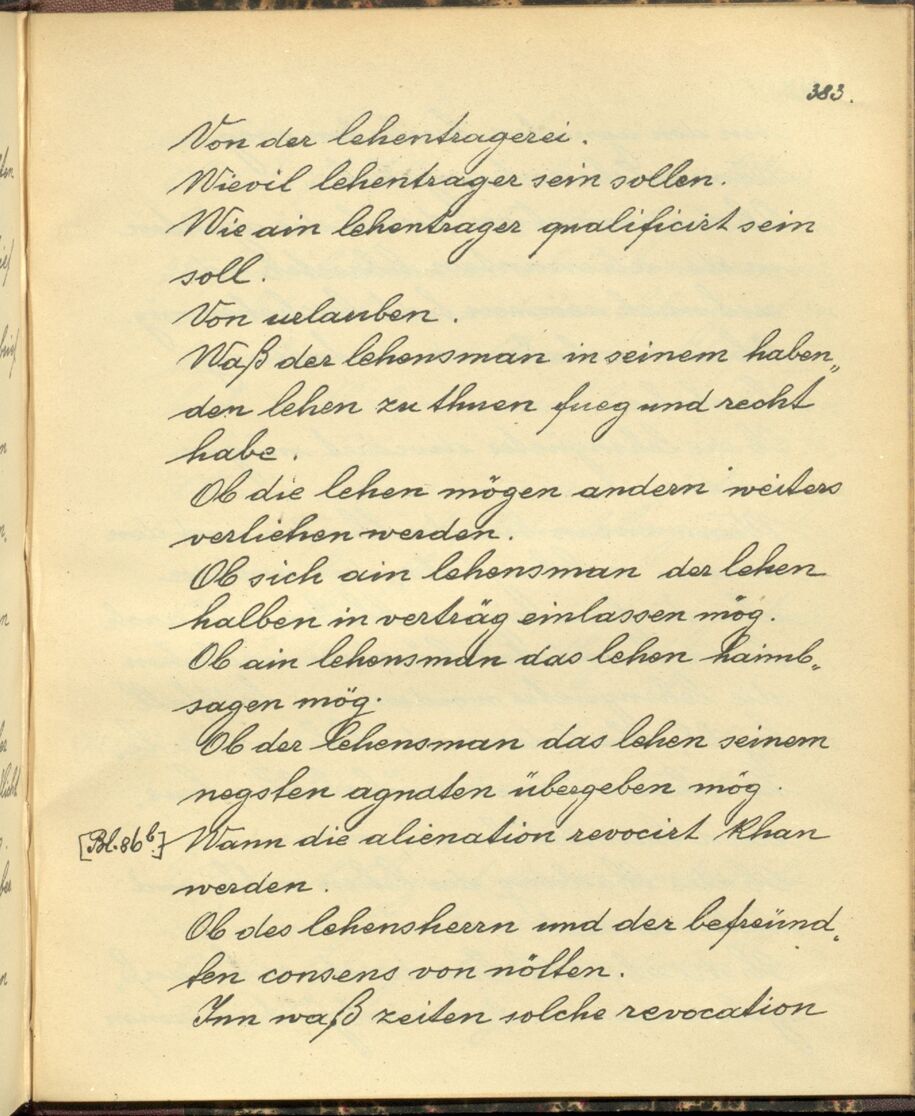 383.
Von der lehentragerei.
Wievil lehentrager sein sollen.
Wie ain lehentrager qualificirt sein
soll.
Von urlauben.
Waß der lehensman in seinem haben„
den lehen zu thuen fueg und recht
habe.
Ob die lehen mögen andern weiters
verliehen werden.
Ob sich ain lehensman der lehen
halben in verträg einlassen mög.
Ob ain lehensman das lehen haimb„
sagen mög.
Ob der lehensman das lehen seinem
negsten agnaten übergeben mög.
[Bl. 86b.] Wann die alienation revocirt khan
werden.
Ob des lehensherrn und der befreünd„
ten consens von nötten.
Inn waß zeiten solche revocation